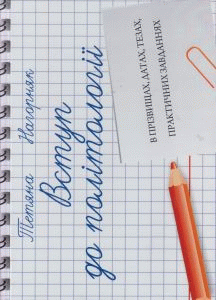 Тетяна Нагорняк
Вступ
до політології
В ПРІЗВИЩАХ, ДАТАХ, ТЕЗАХ,
ПРАКТИЧНИХ ЗАВДАННЯХ